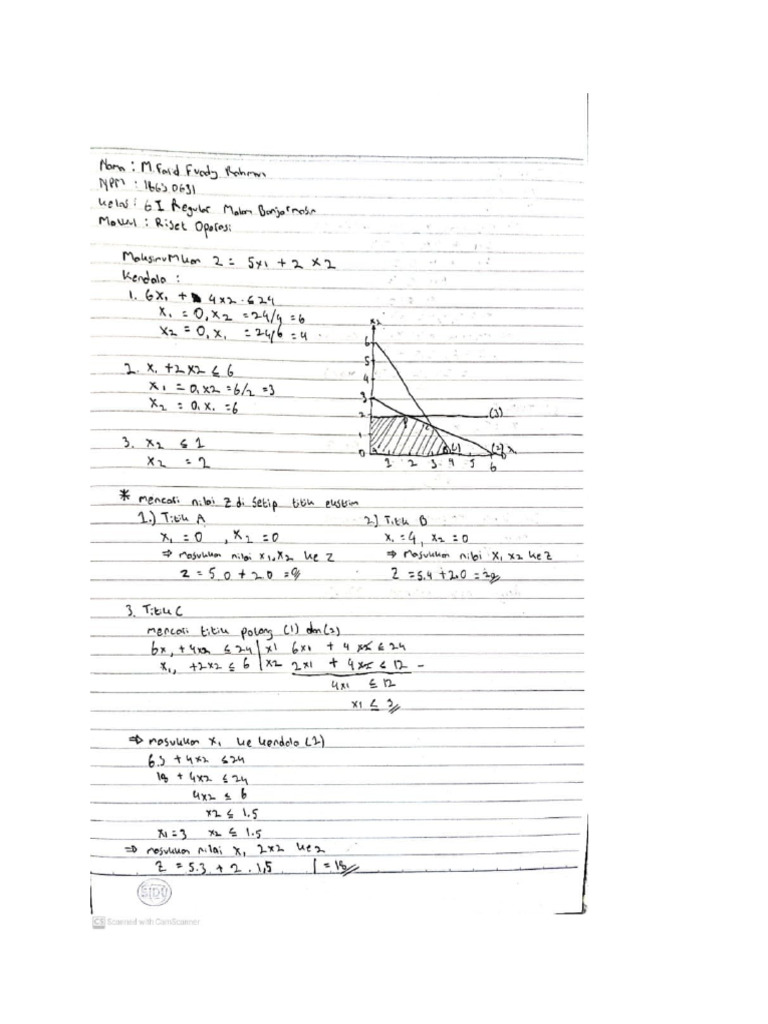 Nama : M. Farid Fuady Rahman
NPM : 1663.0631
Kelas : 6I Reguler Malam Banjarmasin
Matkul : Riset Operasi
Maksimumkan Z = 5x1 + 2x2
Kendala :
1. 6x1 + 4x2 ≤ 24
x1 = 0, x2 = 24/4 = 6
x2 = 0, x1 = 24/6 = 4
2. x1 + 2x2 ≤ 6
x1 = 0, x2 = 6/2 = 3
x2 = 0, x1 = 6
3. x2 ≤ 1
x2 = 2
x2
6
5
4
3
2
1
0
1 2 3 4 5 6
(3)
B
C
(1)
(2)
* mencari nilai Z di setiap titik ekstim
1.) Titik A
x1 = 0 , x2 = 0
⇒ masukkan nilai x1, x2 ke Z
Z = 5.0 + 2.0 = 0
2.) Titik B
x1 = 4, x2 = 0
⇒ masukkan nilai x1 x2 ke Z
Z = 5.4 + 2.0 = 20
3. Titik C
mencari titik potong (1) dan (2)
6x1 + 4x2 ≤ 24 | x1 6x1 + 4x2 ≤ 24
x1, +2x2 ≤ 6 | x2 2x1 + 4x2 ≤ 12 -
4x1 ≤ 12
x1 ≤ 3
⇒ masukkan x1 ke kendala (2)
6.3 + 4x2 ≤ 24
18 + 4x2 ≤ 24
4x2 ≤ 6
x2 ≤ 1.5
x1 = 3 x2 ≤ 1.5
⇒ masukkan nilai x1 2x2 ke z
Z = 5.3 + 2 . 1,5 | = 18
SIDU
CS Scanned with CamScanner